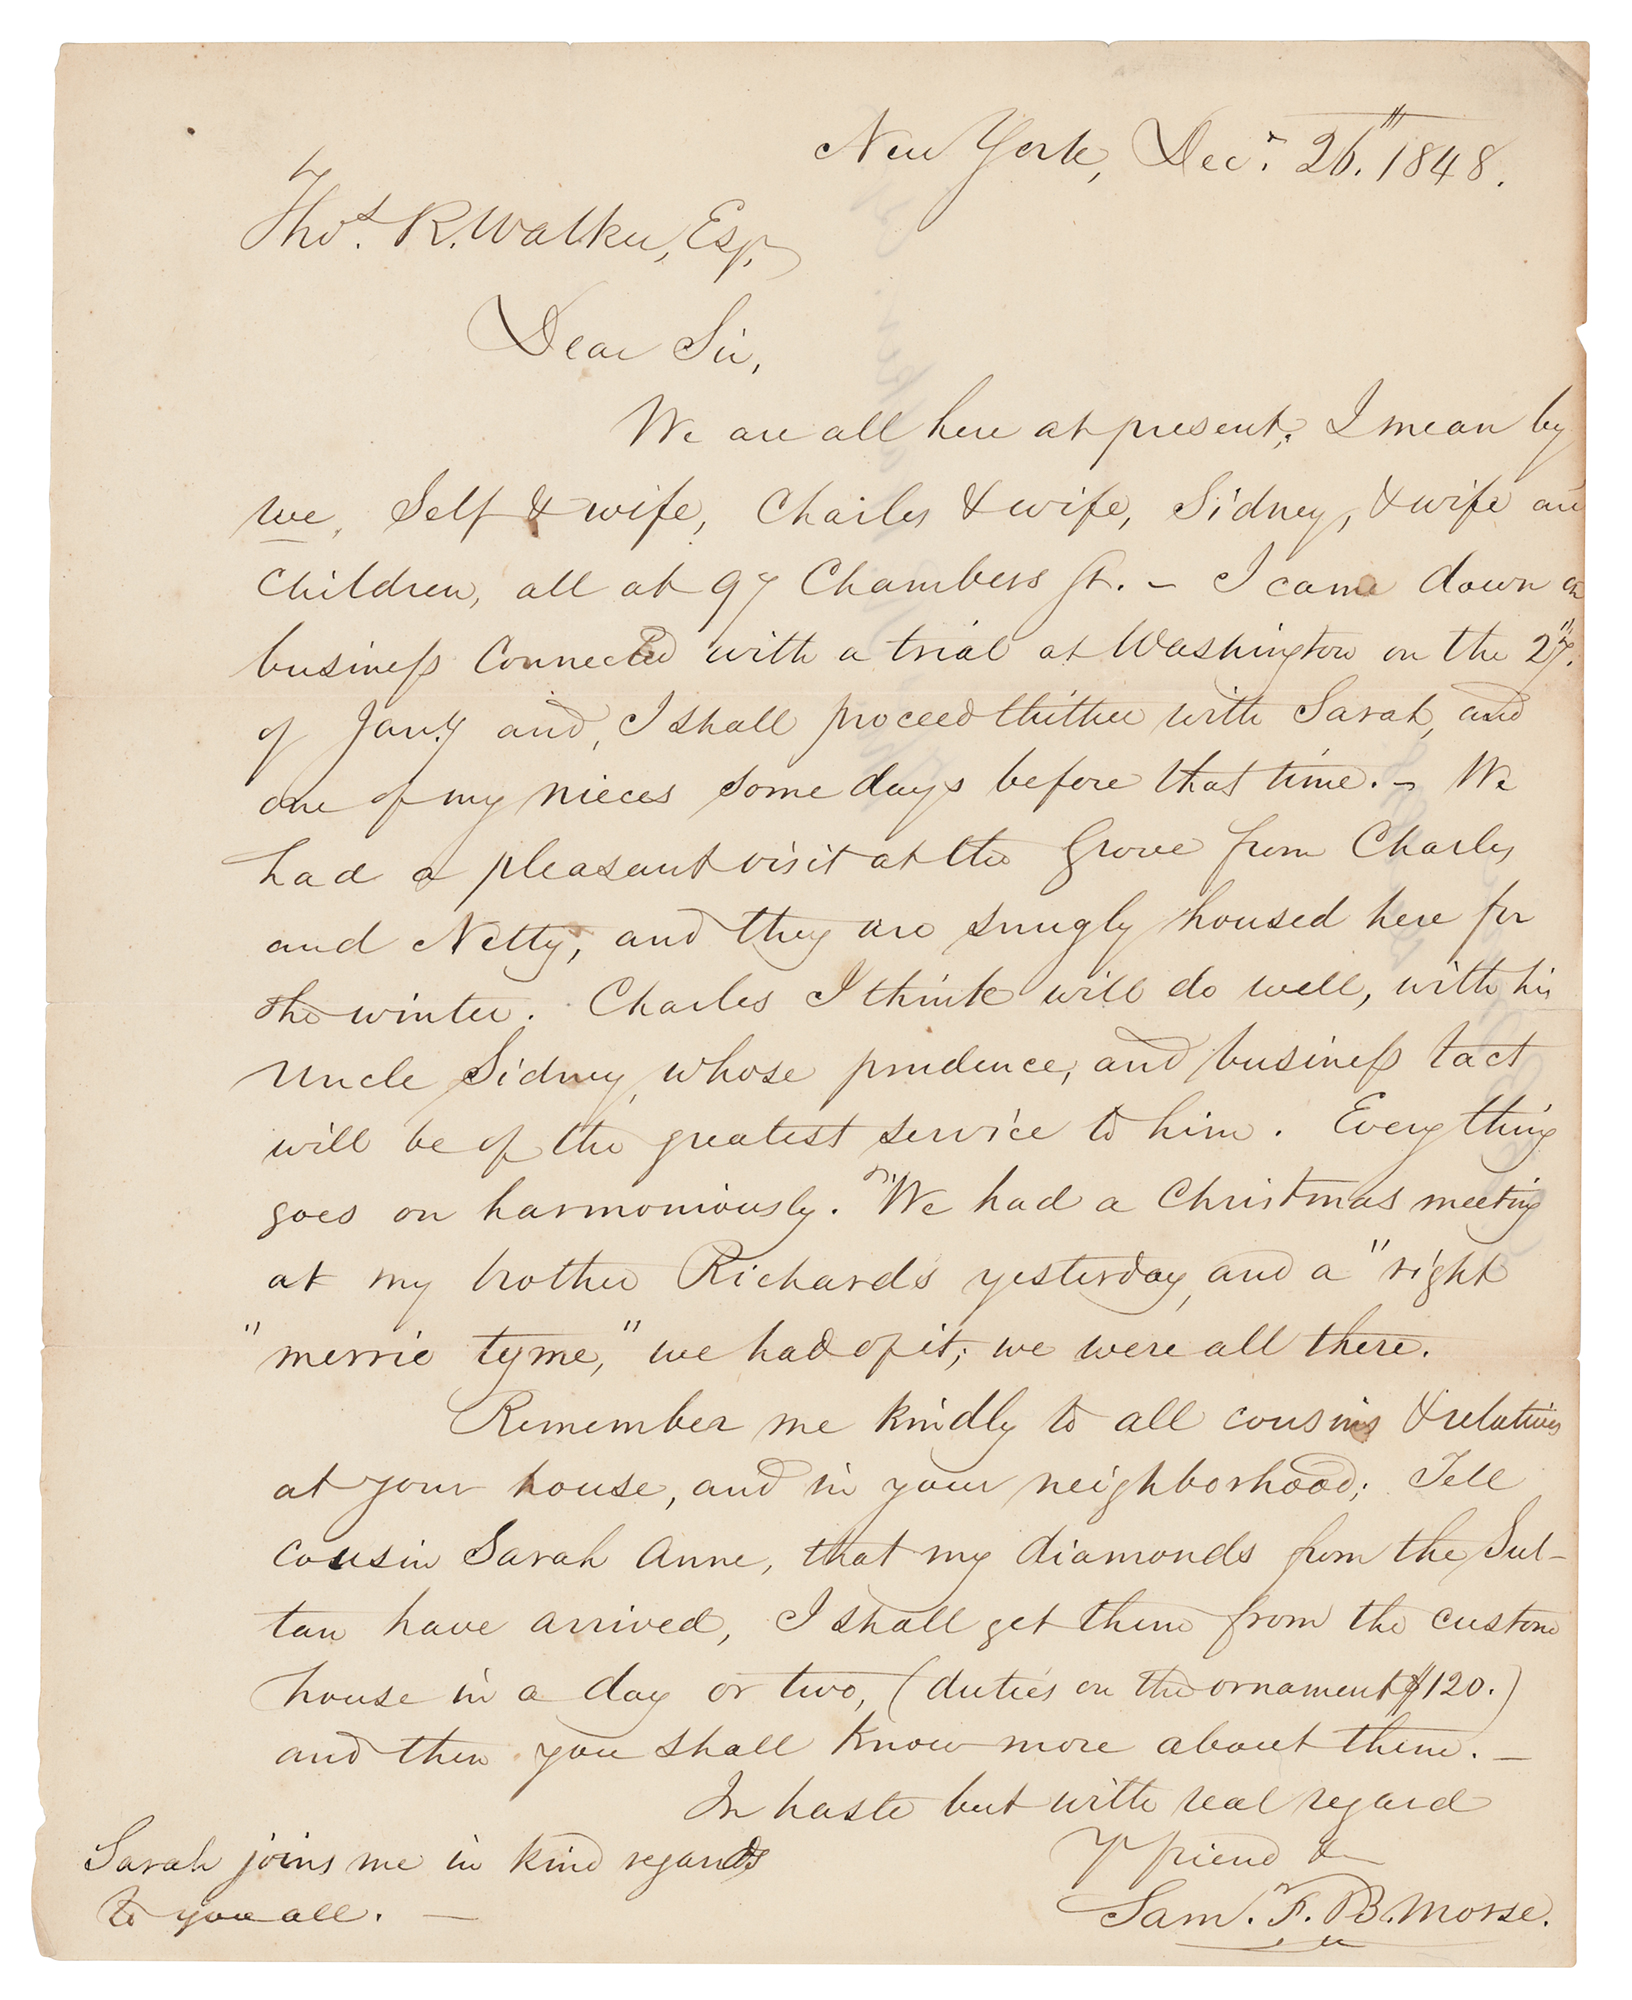 New York, Decr. 26th. 1848.
Thos. R. Walker, Esq.
Dear Sir,
We are all here at present; I mean by
we, Self & wife, Charles & wife, Sidney, & wife and
children, all at 97 Chambers St. – I came down on
business connected with a trial at Washington on the 2d.
of Jany and, I shall proceed thither with Sarah, and
one of my nieces some days before that time. – We
had a pleasant visit at the Grove from Charles
and Netty, and they are snugly housed here for
the winter. Charles I think will do well, with his
Uncle Sidney, whose prudence, and business tact
will be of the greatest service to him. Every thing
goes on harmoniously. We had a Christmas meeting
at my brother Richard's yesterday, and a "right
"merrie tyme," we had of it; we were all there.
Remember me kindly to all cousins & relatives
at your house, and in your neighborhood; Tell
cousin Sarah Anne, that my diamonds from the Sul-
tan have arrived, I shall get them from the custom
house in a day or two, (duties on the ornament $120.)
and then you shall know more about them. –
In haste but with real regard
Yr friend &
Saml. F. B. Morse.
Sarah joins me in kind regards
to you all. –